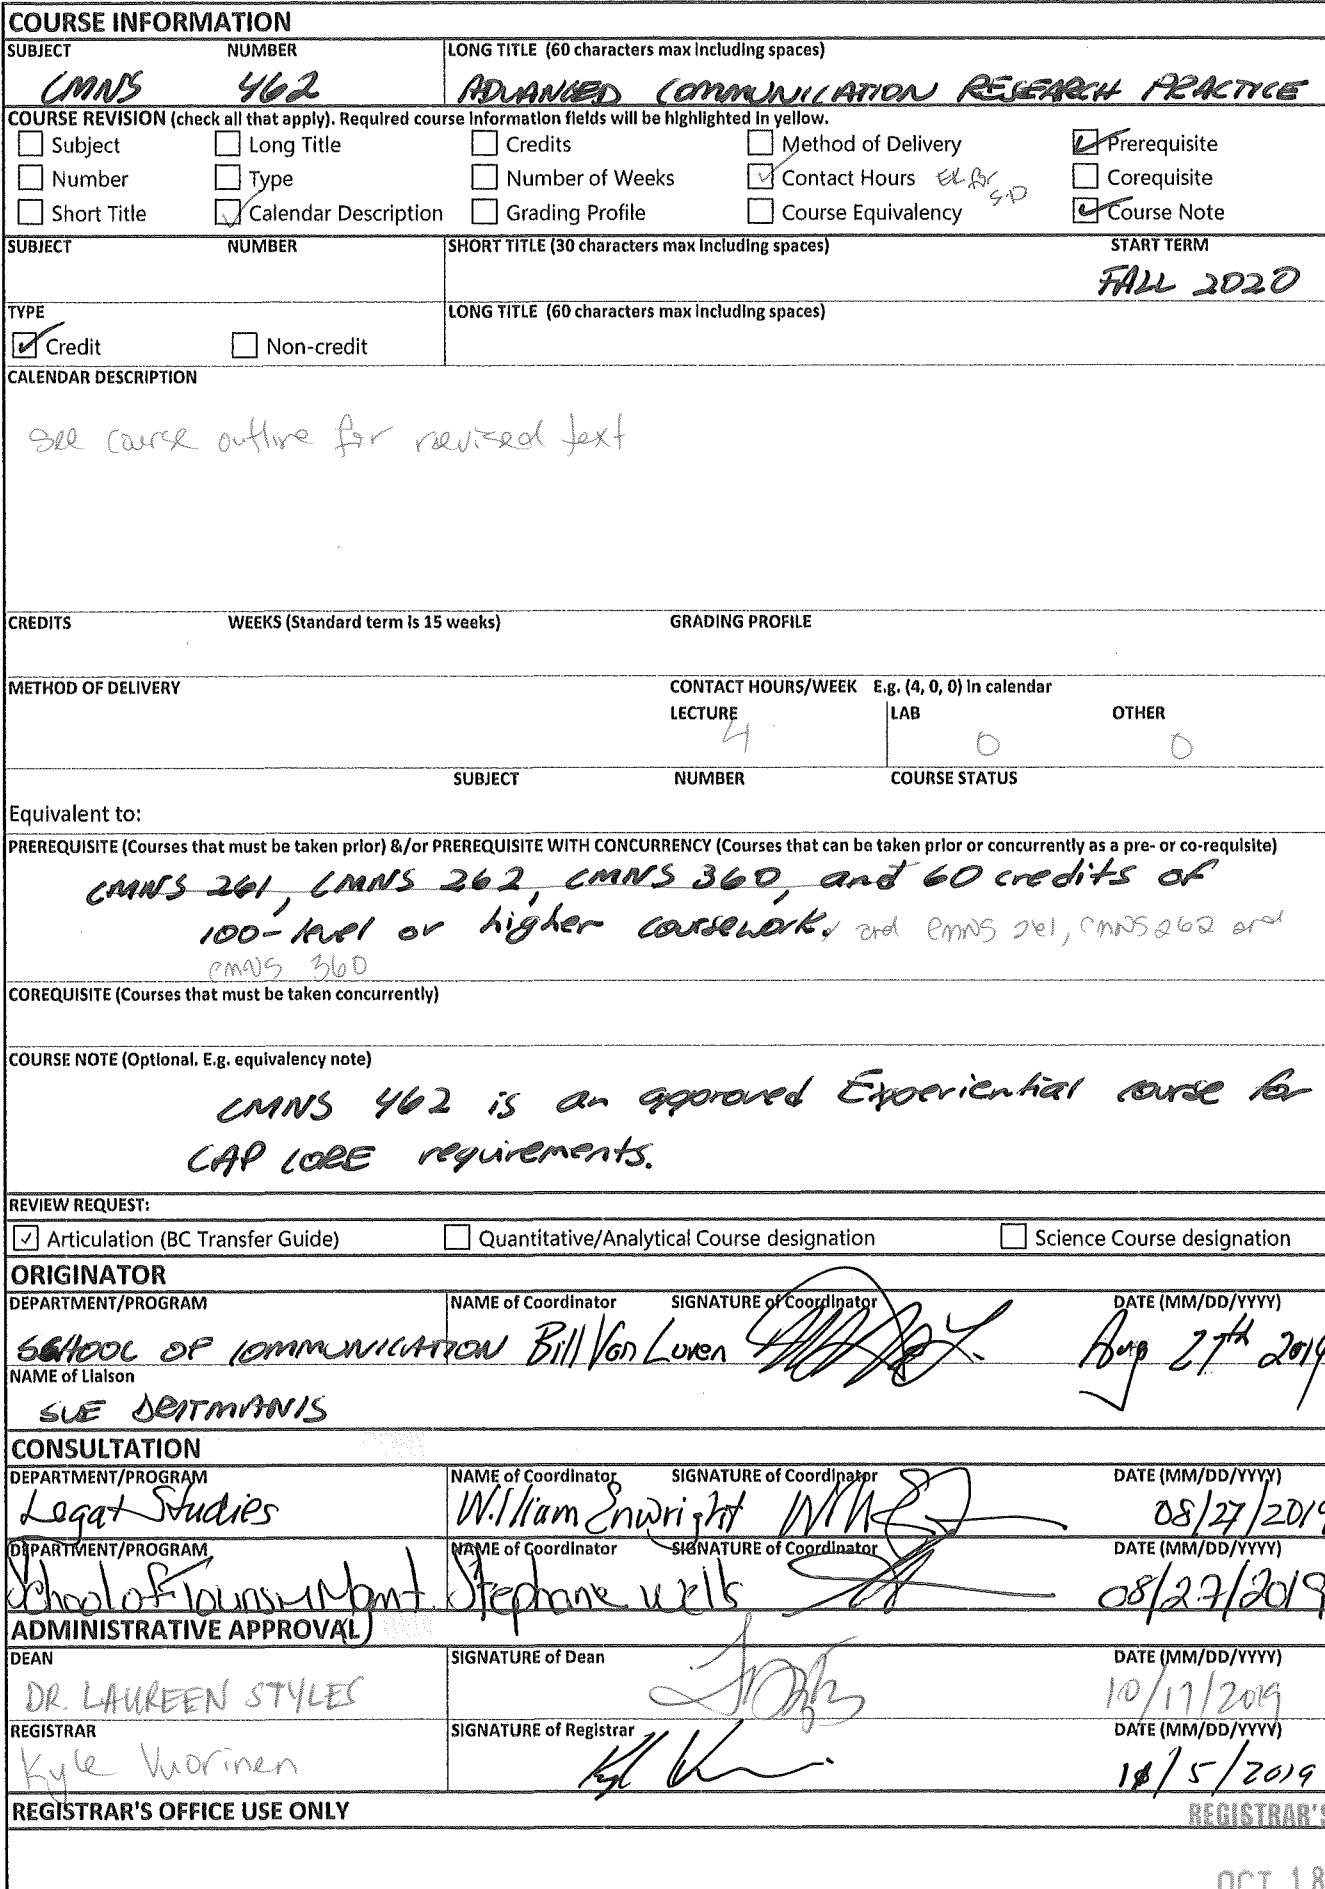 COURSE INFORMATION
SUBJECT NUMBER LONG TITLE (60 characters max including spaces)
CMNS 462 ADVANCED COMMUNICATION RESEARCH PRACTICE
COURSE REVISION (check all that apply). Required course information fields will be highlighted in yellow.
Subject Long Title Credits Method of Delivery Prerequisite
Number Type Number of Weeks Contact Hours Corequisite
Short Title Calendar Description Grading Profile Course Equivalency Course Note
SUBJECT NUMBER SHORT TITLE (30 characters max including spaces) START TERM
FALL 2020
TYPE LONG TITLE (60 characters max including spaces)
Credit Non-credit
CALENDAR DESCRIPTION
see course outline for revised text
CREDITS WEEKS (Standard term is 15 weeks) GRADING PROFILE
METHOD OF DELIVERY CONTACT HOURS/WEEK E.g. (4, 0, 0) in calendar
LECTURE LAB OTHER
4 0 0
SUBJECT NUMBER COURSE STATUS
Equivalent to:
PREREQUISITE (Courses that must be taken prior) &/or PREREQUISITE WITH CONCURRENCY (Courses that can be taken prior or concurrently as a pre- or co-requisite)
CMNS 261, CMNS 262, CMNS 360, and 60 credits of
100-level or higher coursework. and CMNS 261, CMNS 262 and
CMNS 360
COREQUISITE (Courses that must be taken concurrently)
COURSE NOTE (Optional. E.g. equivalency note)
CMNS 462 is an approved Experiential course for
CAP CORE requirements.
REVIEW REQUEST:
Articulation (BC Transfer Guide) Quantitative/Analytical Course designation Science Course designation
ORIGINATOR
DEPARTMENT/PROGRAM NAME of Coordinator SIGNATURE of Coordinator DATE (MM/DD/YYYY)
SCHOOL OF COMMUNICATION Bill Van Luven Aug 27th 2019
NAME of Liaison
SUE DRITMANIS
CONSULTATION
DEPARTMENT/PROGRAM NAME of Coordinator SIGNATURE of Coordinator DATE (MM/DD/YYYY)
Legal Studies William Enwright 08/27/2019
DEPARTMENT/PROGRAM NAME of Coordinator SIGNATURE of Coordinator DATE (MM/DD/YYYY)
School of Tourism Mgmt. Stephanie Wells 08/27/2019
ADMINISTRATIVE APPROVAL
DEAN SIGNATURE of Dean DATE (MM/DD/YYYY)
DR. LAUREEN STYLES 10/17/2019
REGISTRAR SIGNATURE of Registrar DATE (MM/DD/YYYY)
Kyle Vuorinen 5/2019
REGISTRAR'S OFFICE USE ONLY REGISTRAR'S
OCT 18